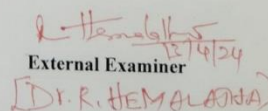 R. Hemalatha
13/4/24
External Examiner
[Dr. R. HEMALATHA